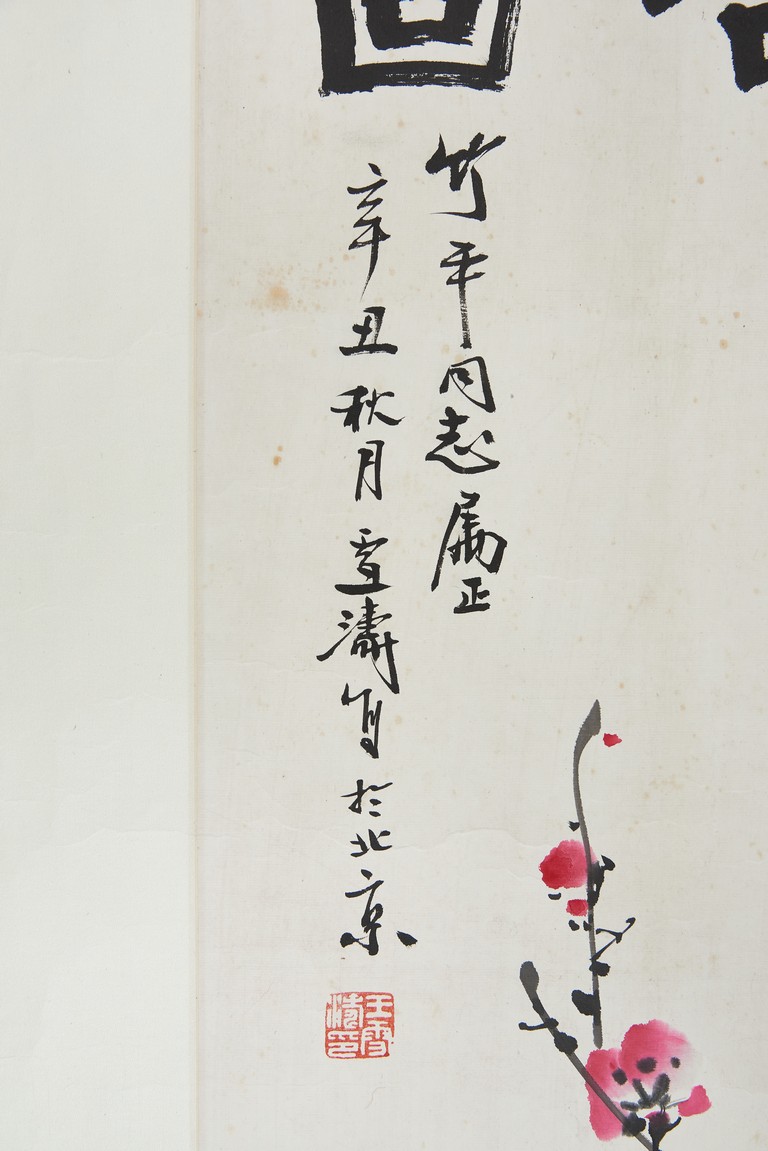 竹平同志属正
辛丑秋月雪濤写於北京
王雪濤印